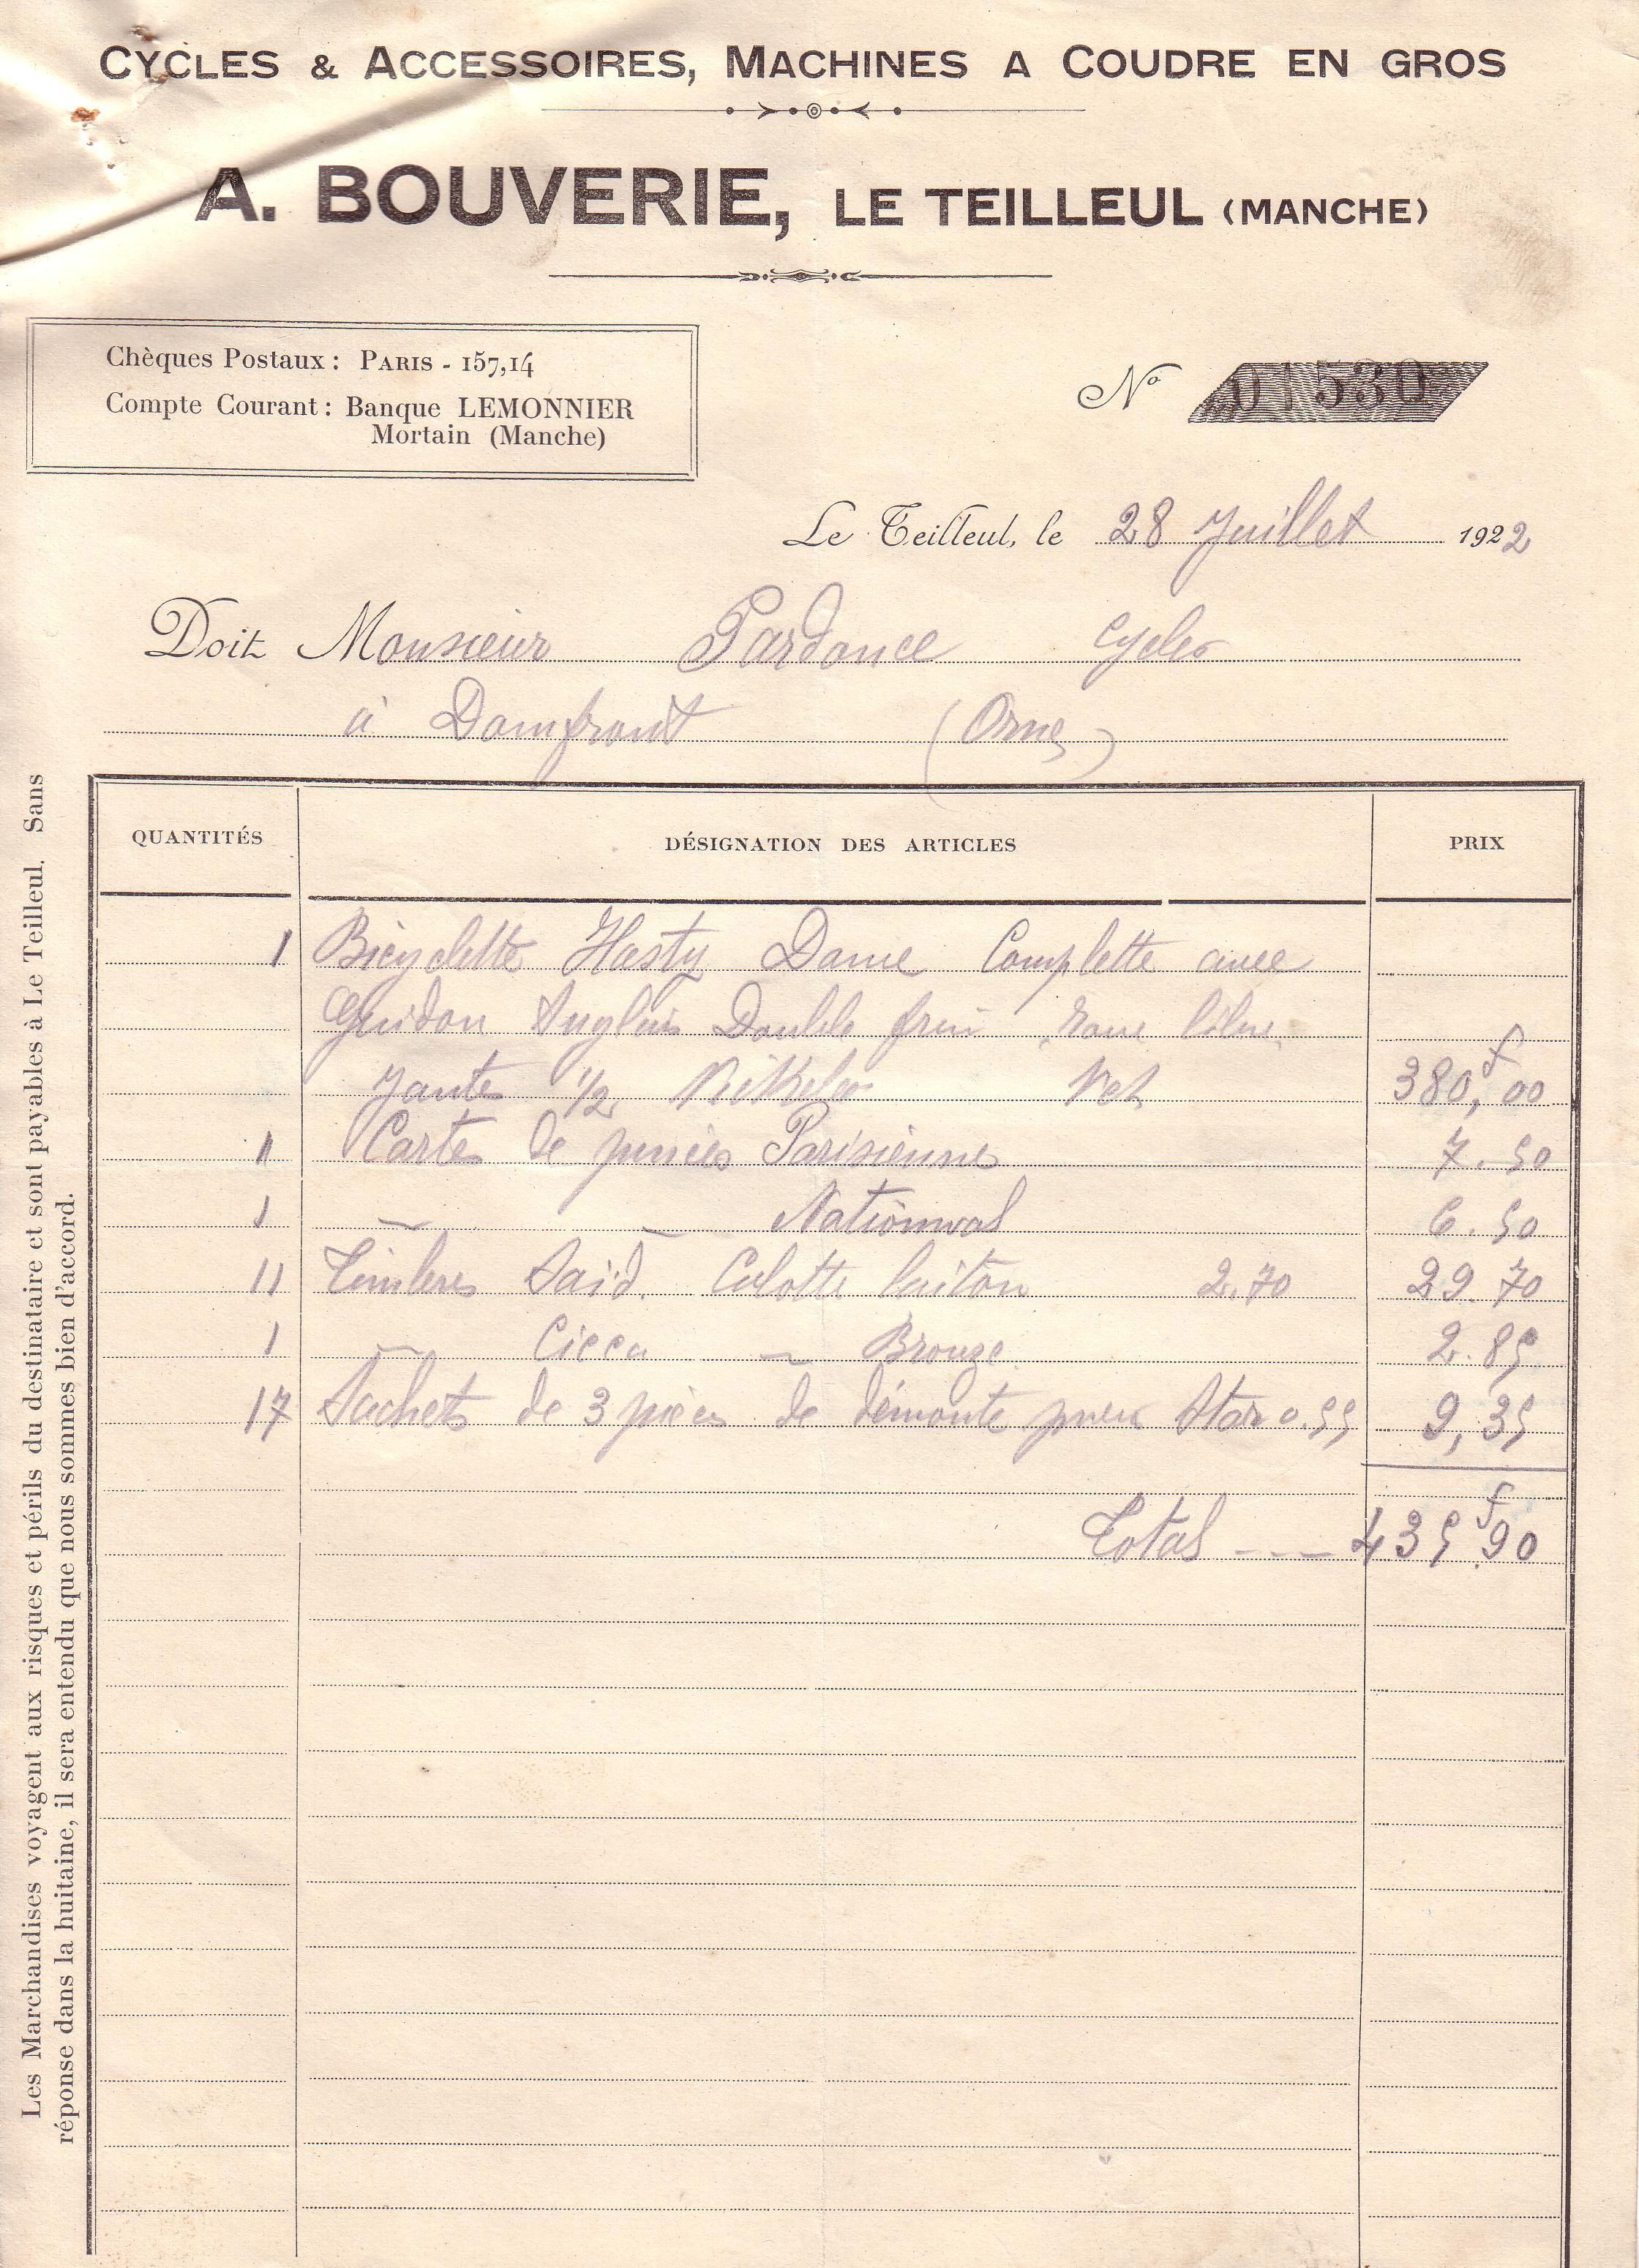 CYCLES & ACCESSOIRES, MACHINES A COUDRE EN GROS
A. BOUVERIE, LE TEILLEUL (MANCHE)
Chèques Postaux : PARIS - 157,14
Compte Courant : Banque LEMONNIER
Mortain (Manche)
No 01530
Le Teilleul, le 28 Juillet 1922
Doit Monsieur Pardonce Cycles
à Domfront (Orne)
QUANTITÉS DÉSIGNATION DES ARTICLES PRIX
1 Bicyclette Hasty Dame Complette avec
Guidon Anglais Double frein roue libre
Jante 1/2 Net 380,f00
1 Carte de Parisienne 7.50
1 — — National 6.50
11 Timbres Saïd. Calotte laiton 2.70 29.70
1 — Cicca — Bronze 2.85
17 Sachets de 3 pièces de démonte pneu Star 0.55 9,35
Total --- 435f90
Les Marchandises voyagent aux risques et périls du destinataire et sont payables à Le Teilleul. Sans
réponse dans la huitaine, il sera entendu que nous sommes bien d'accord.